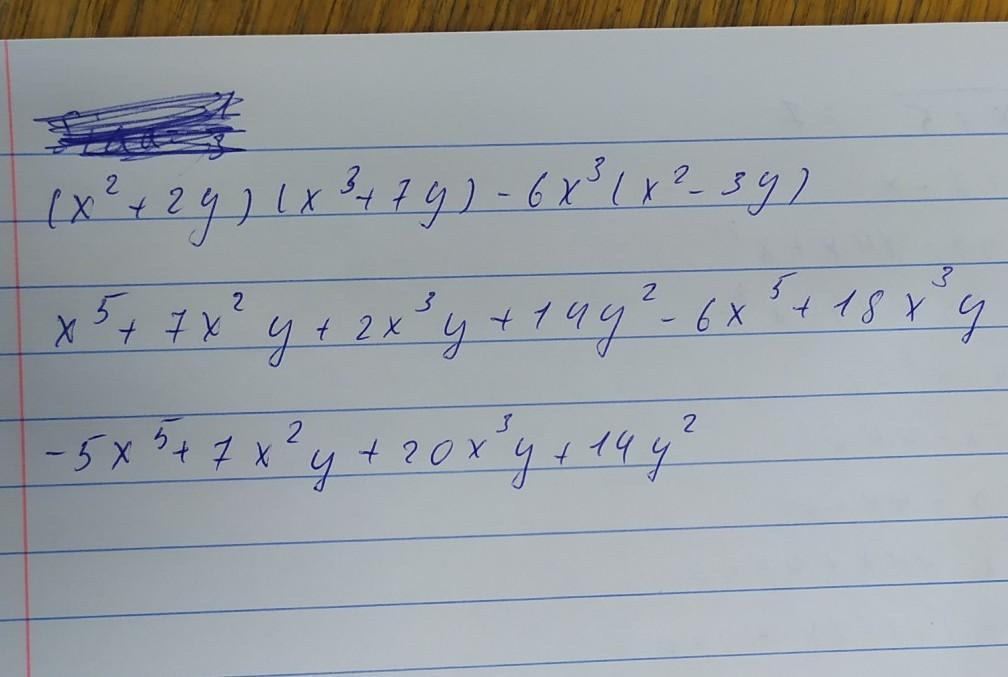 (x² + 2y)(x³ + 7y) - 6x³(x² - 3y)
x⁵ + 7x²y + 2x³y + 14y² - 6x⁵ + 18x³y
-5x⁵ + 7x²y + 20x³y + 14y²